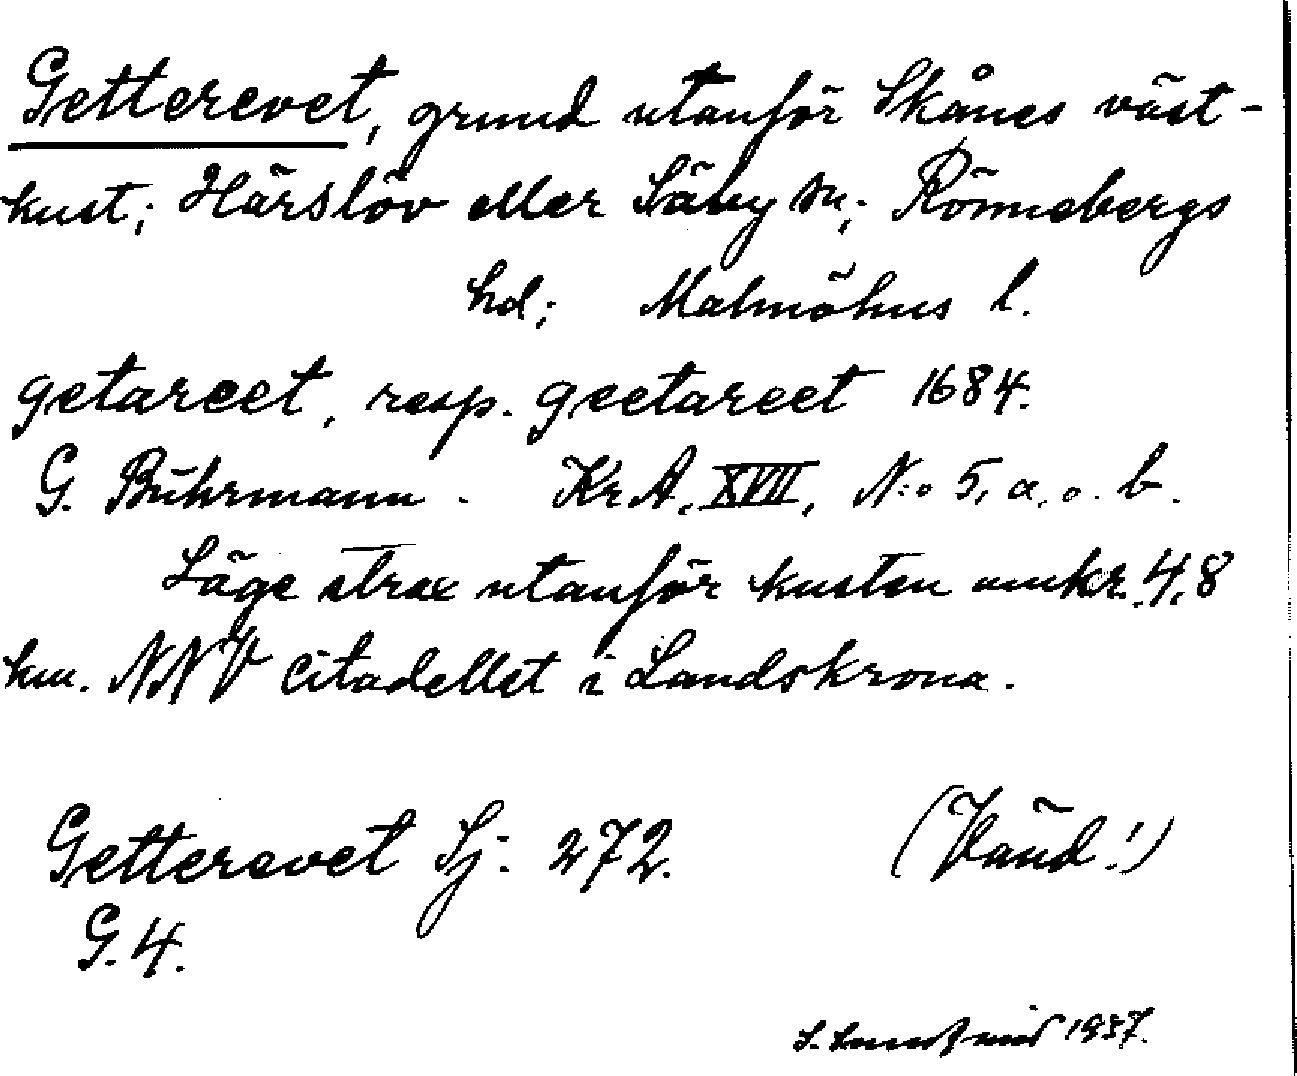 Getterevet, grund utanför Skånes väst-
kust; Härslöv eller Säby sn; Rönnebergs
hd; Malmöhus l.
getareet, resp. geetareet 1684.
G. Buhrmann. Kr A, XVII, N:o 5, a. o. b.
Läge strax utanför kusten omkr. 4,8
km. NNV citadellet i Landskrona.
Getterevet Sj. 272. (Vänd!)
G. 4.
S. 1937.